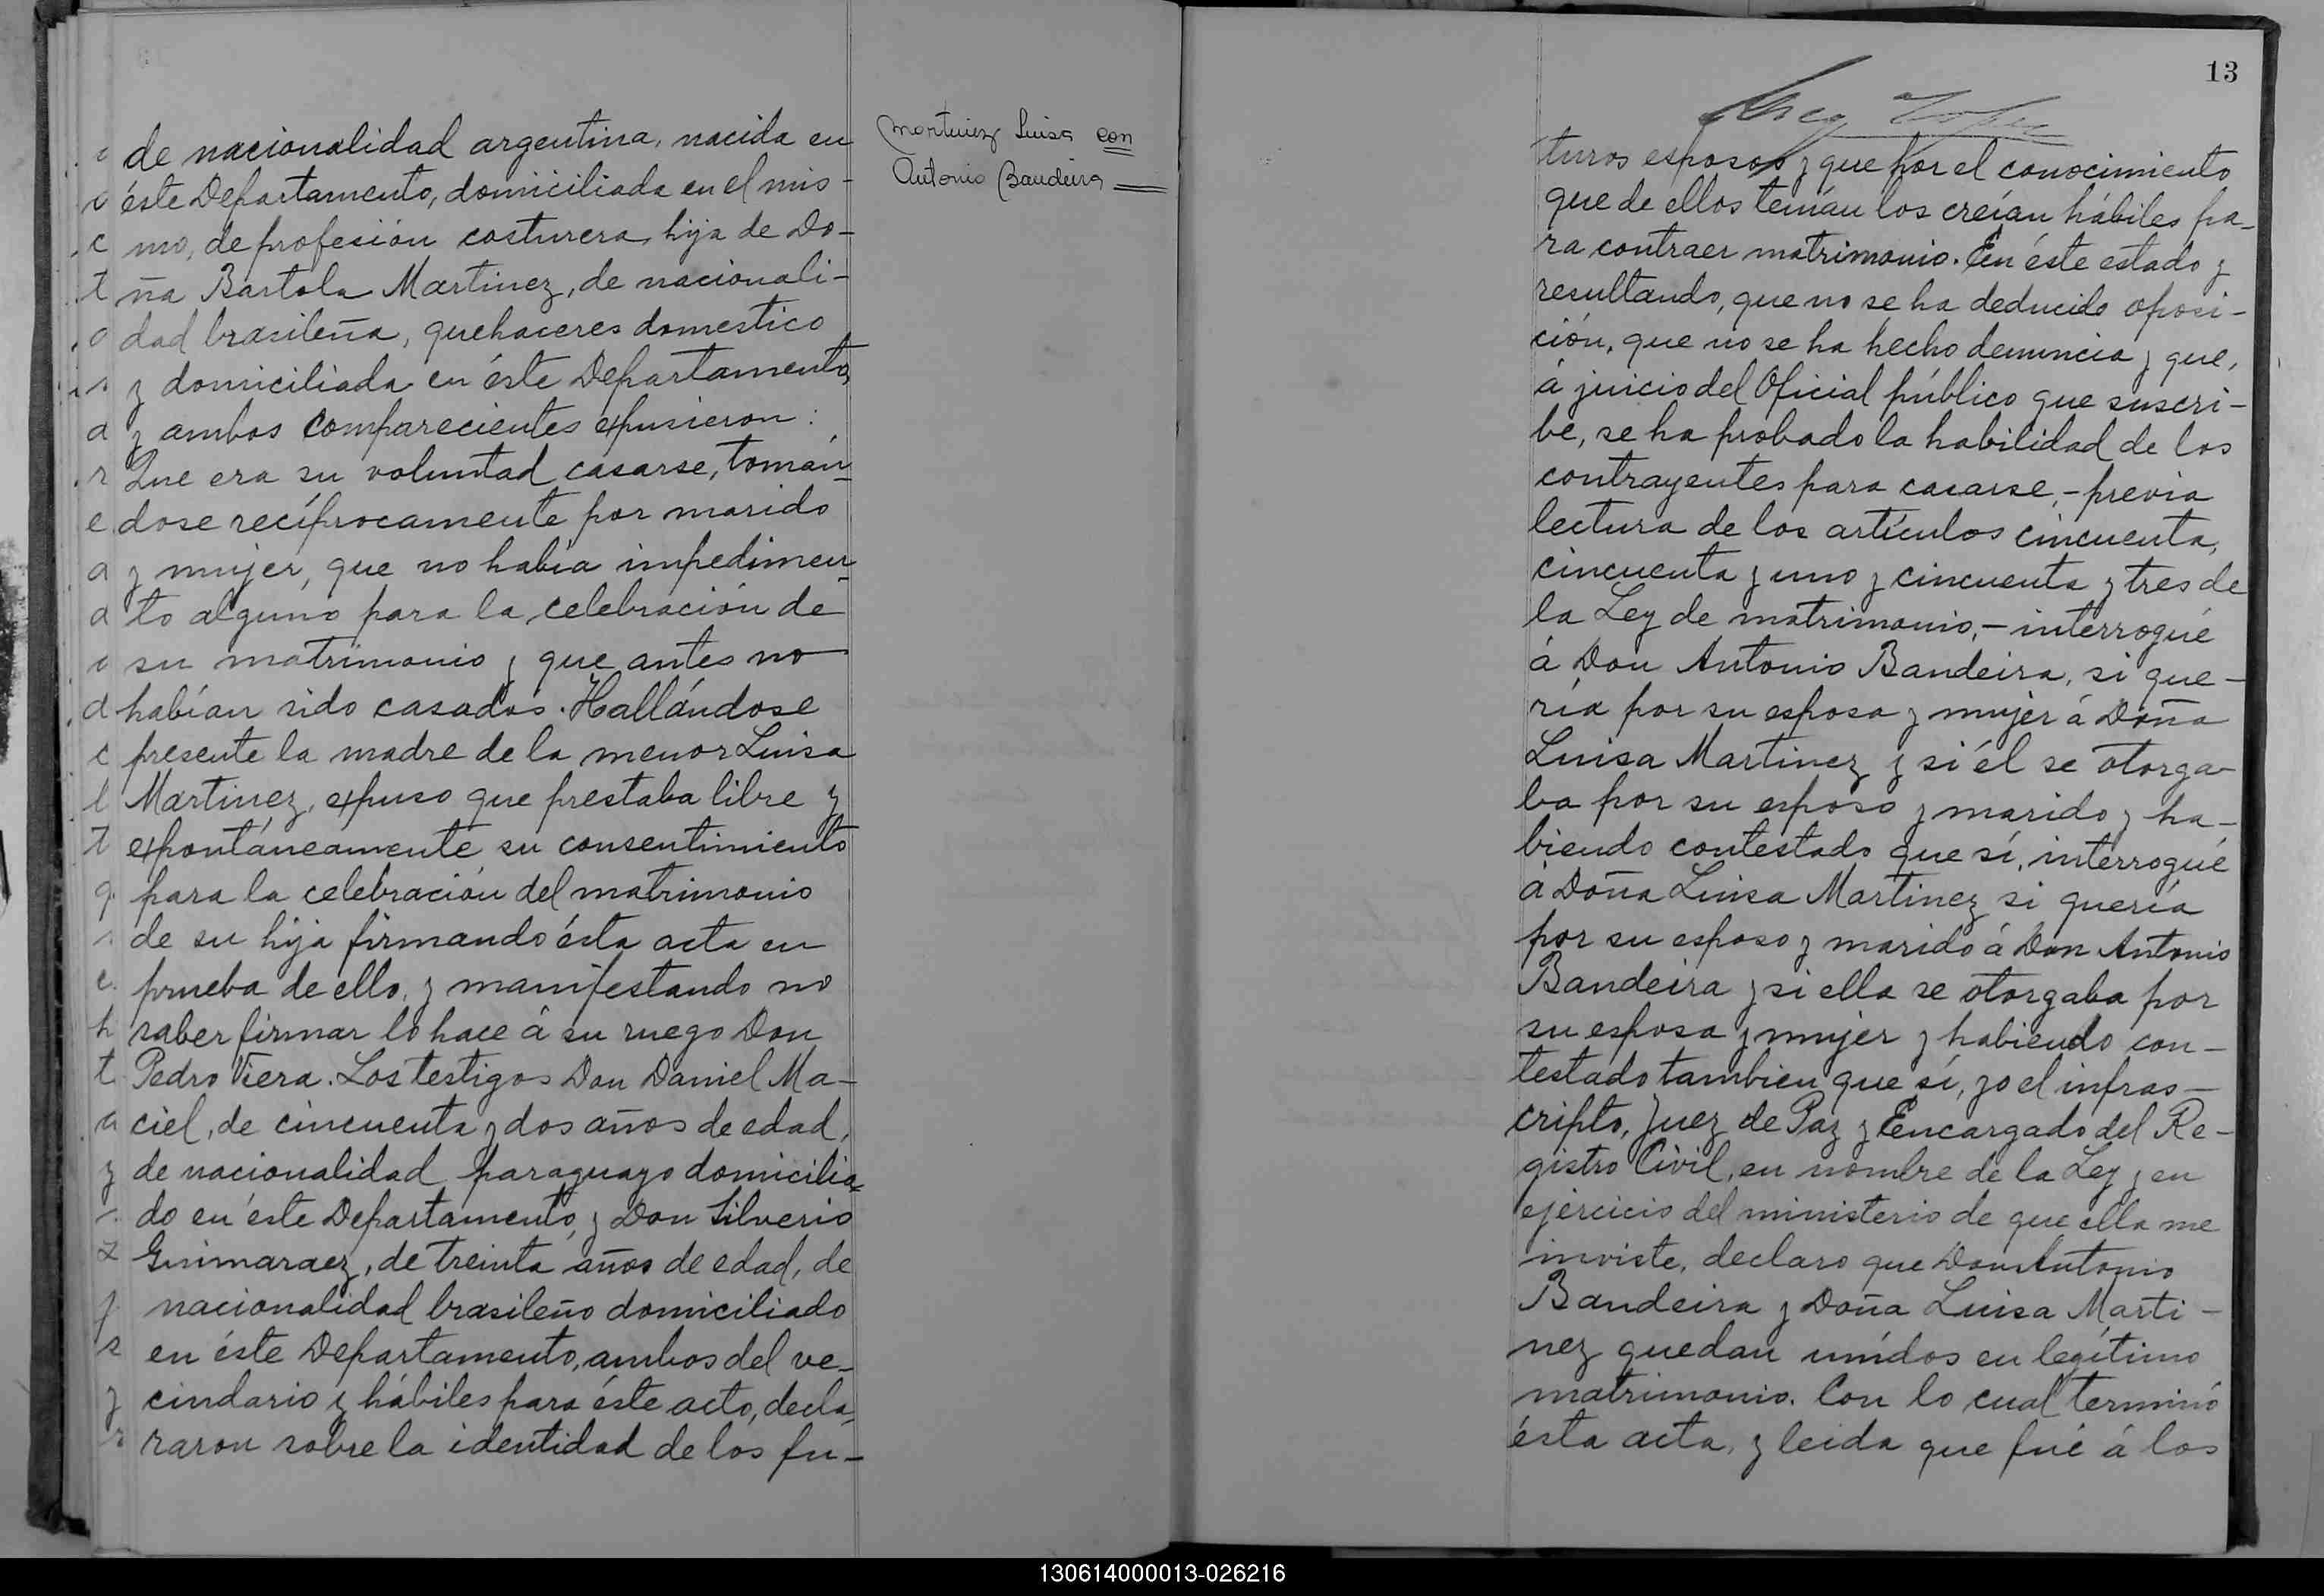 de nacionalidad argentina, nacida en
éste Departamento, domiciliada en el mis-
mo, de profesión costurera, hija de Do-
ña Bartola Martinez, de nacionali-
dad brasileña, quehaceres domestico
y domiciliada en éste Departamento,
y ambos comparecientes expusieron:
Que era su voluntad casarse, tomán-
dose recíprocamente por marido
y mujer, que no había impedimen-
to alguno para la celebración de
su matrimonio y que antes no
habían sido casados. Hallándose
presente la madre de la menor Luisa
Martinez, expuso que prestaba libre y
expontáneamente su consentimiento
para la celebración del matrimonio
de su hija firmando ésta acta en
prueba de ello, y manifestando no
saber firmar lo hace á su ruego Don
Pedro Viera. Los testigos Don Daniel Ma-
ciel, de cincuenta y dos años de edad,
de nacionalidad paraguayo domicilia-
do en éste Departamento, y Don Silverio
Guimaraez, de treinta años de edad, de
nacionalidad brasileño domiciliado
en éste Departamento, ambos del ve-
cindario y hábiles para éste acto, decla-
raron sobre la identidad de los fu-
Martinez Luisa con
Antonio Bandeira
13
turos esposos y que por el conocimiento
que de ellos tenían los creían hábiles pa-
ra contraer matrimonio. En éste estado y
resultando, que no se ha deducido oposi-
ción, que no se ha hecho denuncia y que,
á juicio del Oficial público que suscri-
be, se ha probado la habilidad de los
contrayentes para casarse,- previa
lectura de los artículos cincuenta,
cincuenta y uno y cincuenta y tres de
la Ley de matrimonio,- interrogué
á Don Antonio Bandeira, si que-
ría por su esposa y mujer á Doña
Luisa Martinez y si él se otorga-
ba por su esposo y marido y ha-
biendo contestado que sí, interrogué
á Doña Luisa Martinez si quería
por su esposo y marido á Don Antonio
Bandeira y si ella se otorgaba por
su esposa y mujer y habiendo con-
testado tambien que sí, yo el infras-
cripto, Juez de Paz y Encargado del Re-
gistro Civil, en nombre de la Ley y en
ejercicio del ministerio de que ella me
inviste, declaro que Don Antonio
Bandeira y Doña Luisa Marti-
nez quedan unídos en legítimo
matrimonio. Con lo cual terminó
ésta acta, y leida que fué á los
130614000013-026216